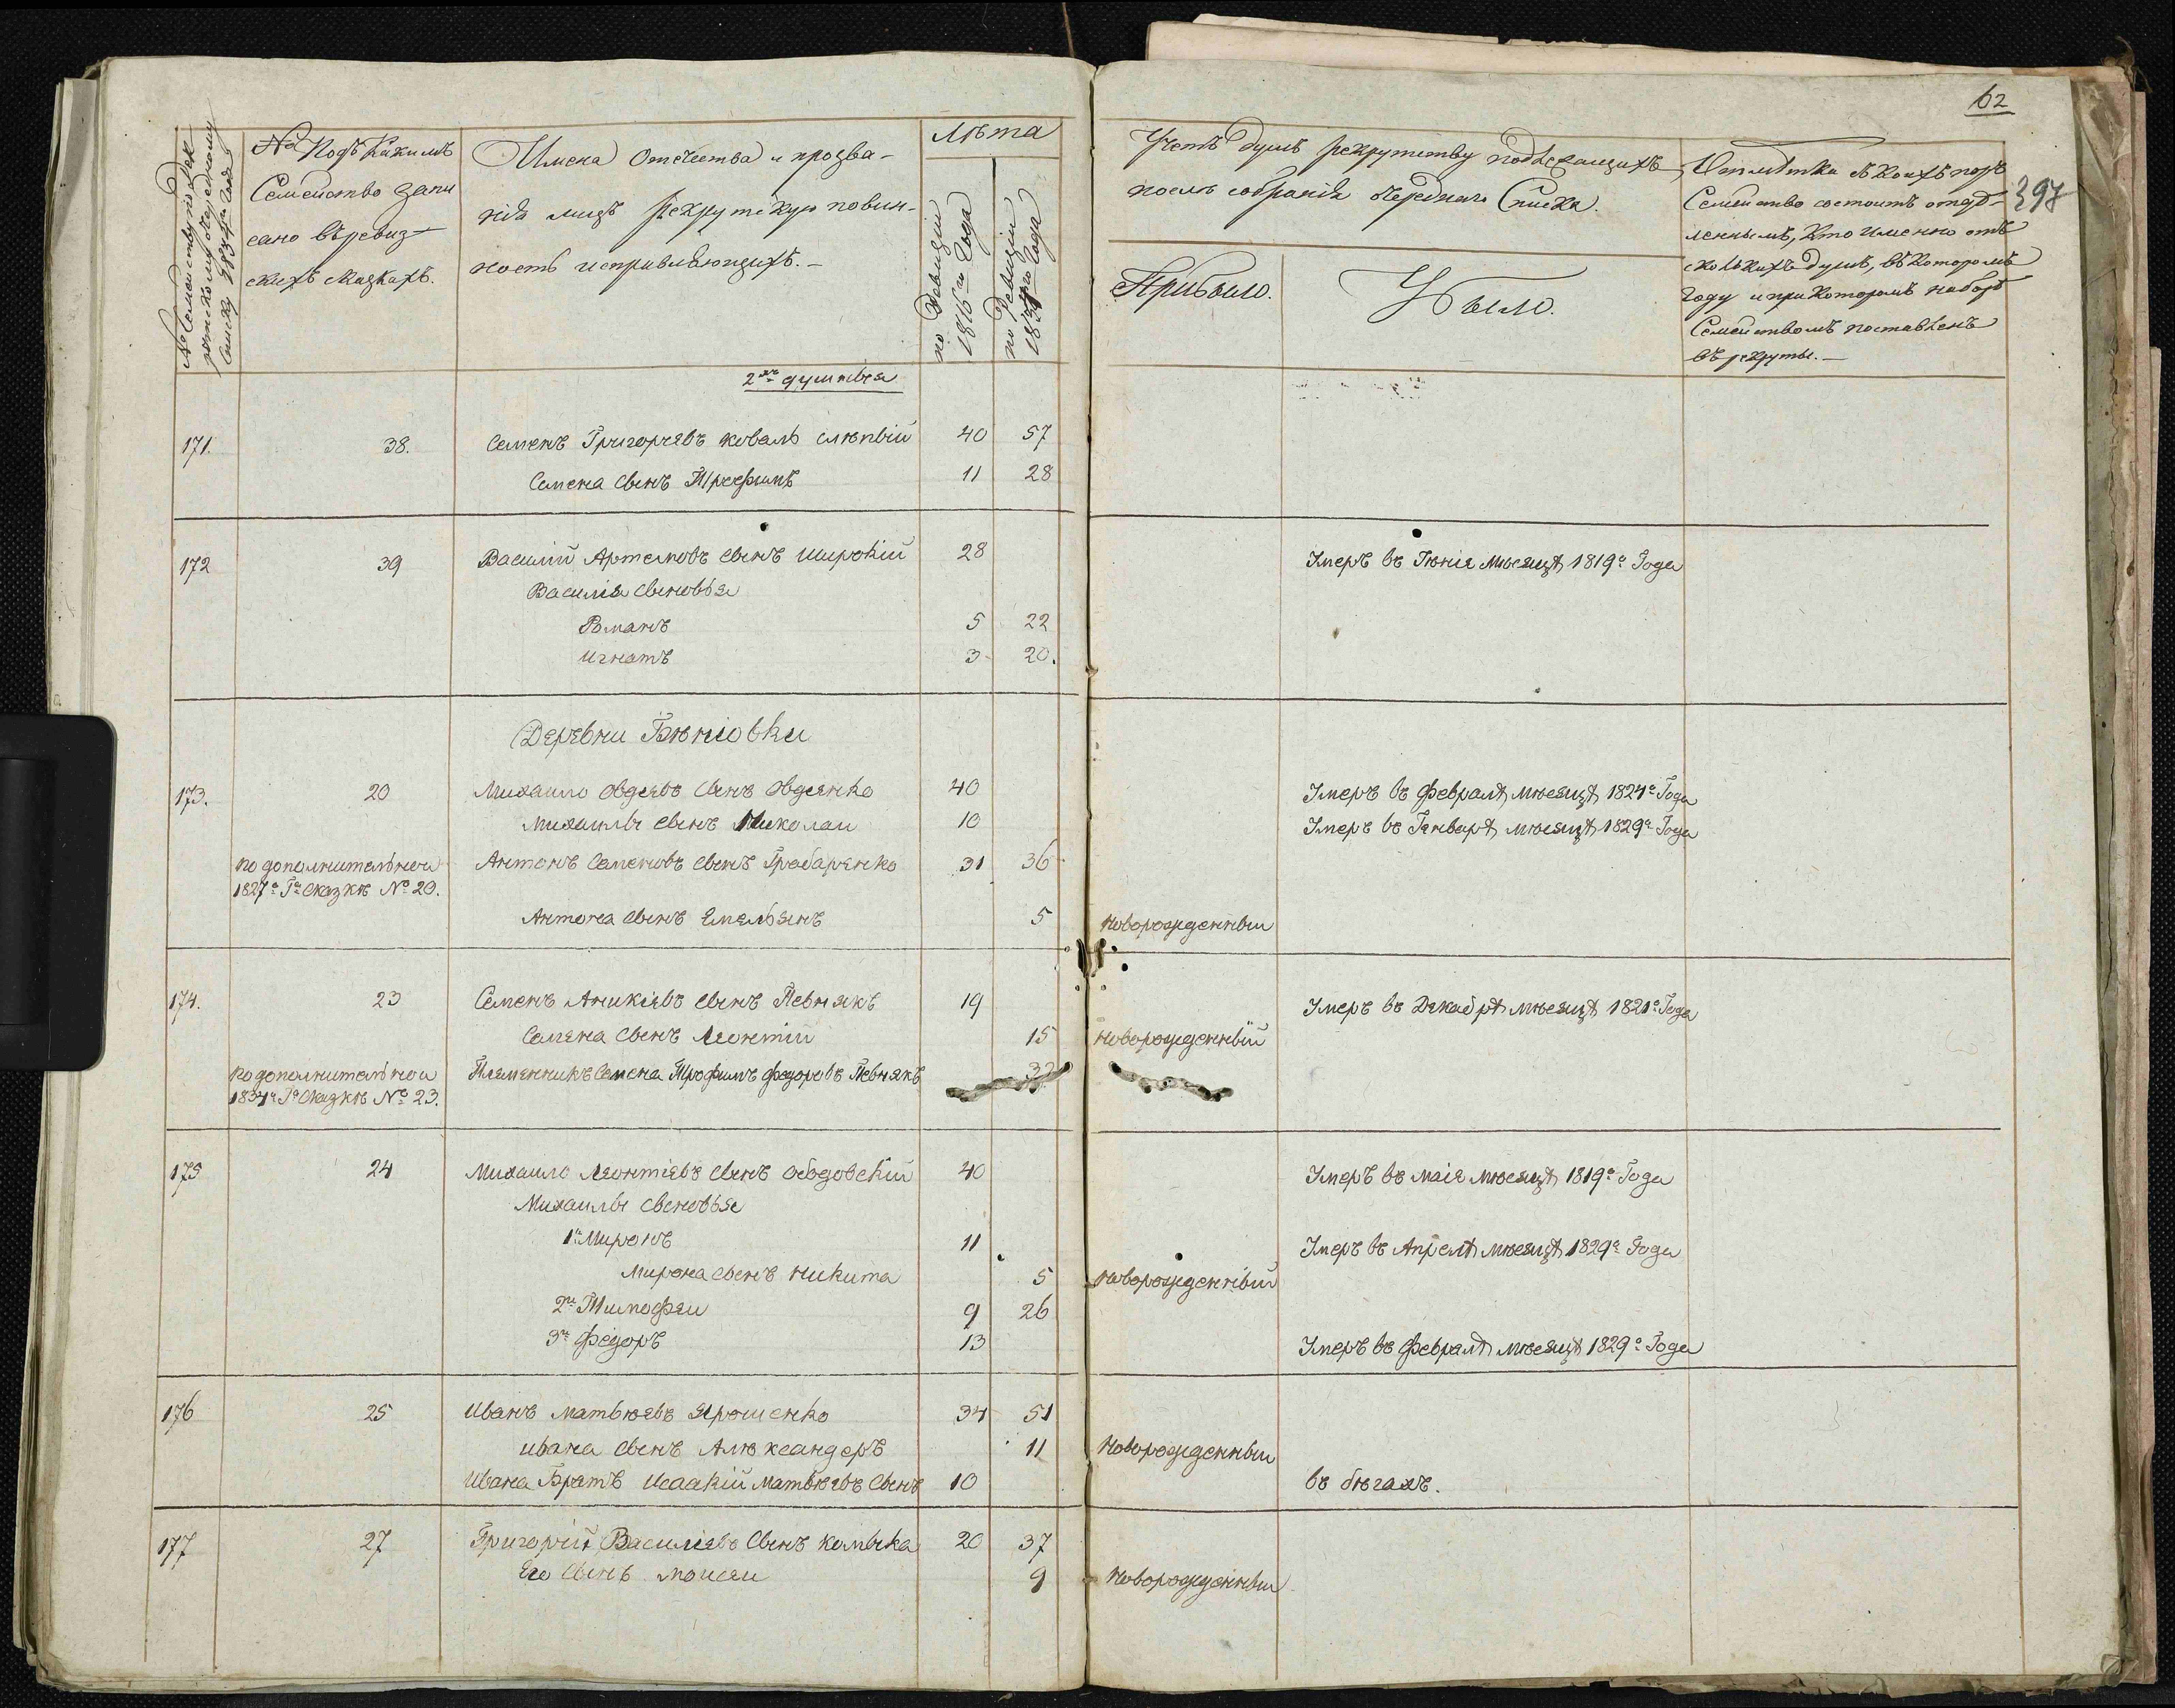 62
397
№ Семейству по рек
рутскому очередному
списку 1834го года
№ Подъ какимъ
Семейство запи
сано въ ревиз-
скихъ сказкахъ.
Имена Отечества и прозва-
нія лицъ рекрутскую повин-
ность исправляющихъ.-
Лѣта
по Ревизіи
1816го Года
по Ревизіи
1834го Года
Учетъ душъ рекрутству подлежащихъ
послѣ собранія очереднаго Списка.
Прибыло.
Убыло.
Отмѣтка съ коихъ поръ
Семейство состоитъ отдѣ-
леннымъ, кто именно отъ
сколькихъ душъ, въ которомъ
году и при которомъ наборѣ
Семействомъ поставленъ
въ рекруты.-
2хъ душныя
171. 38. Семенъ Григорьевъ коваль слѣпый 40 57
Семена сынъ Трофимъ 11 28
172 39 Василій Артемовъ сынъ широкій 28 Умеръ въ Іюнія мѣсяцѣ 1819го Года
Василія сыновья
Романъ 5 22
Игнатъ 3 20.
Деревни Бѣніовки
173. 20 Михаило Овдѣевъ сынъ Овдѣенко 40 Умеръ въ февралѣ мѣсяцѣ 1824го Года
Михаилы сынъ Николаи 10 Умеръ въ Генварѣ мѣсяцѣ 1829го Года
по дополнительнои Антонъ Семеновъ сынъ Грабаренко 31 36
1827го Го сказкѣ № 20.
Антона сынъ Емельянъ 5 новорожденныи
174. 23 Семенъ Аникіевъ сынъ Певнякъ 19 Умеръ въ Декабрѣ мѣсяцѣ 1821го Года
Семена сынъ Леонтіи 15 новорожденный
по дополнительнои Племенникъ Семена Трофимъ федоровъ Певнякъ 32
1834го Го сказкѣ № 23.
175 24 Михаило Леонтіевъ сынъ Ободовскій 40 Умеръ въ маія мѣсяцѣ 1819го Года
Михаилы сыновья
1й Миронъ 11 Умеръ въ Апрелѣ мѣсяцѣ 1829го Года
Мирона сынъ Никита 5 новорожденный
2й Тимофеи 9 26
3й Федоръ 13 Умеръ въ февралѣ мѣсяцѣ 1829го Года
176 25 Иванъ Матвѣевъ Ярошенко 34 51
ивана сынъ Александеръ 11 Новорожденныи
Ивана Братъ Исаакій Матвѣевъ сынъ 10 въ бѣгахъ.
177 27 Григорій Василіевъ Сынъ комыка 20 37
Его Сынъ моисеи 9 Новорожденныи